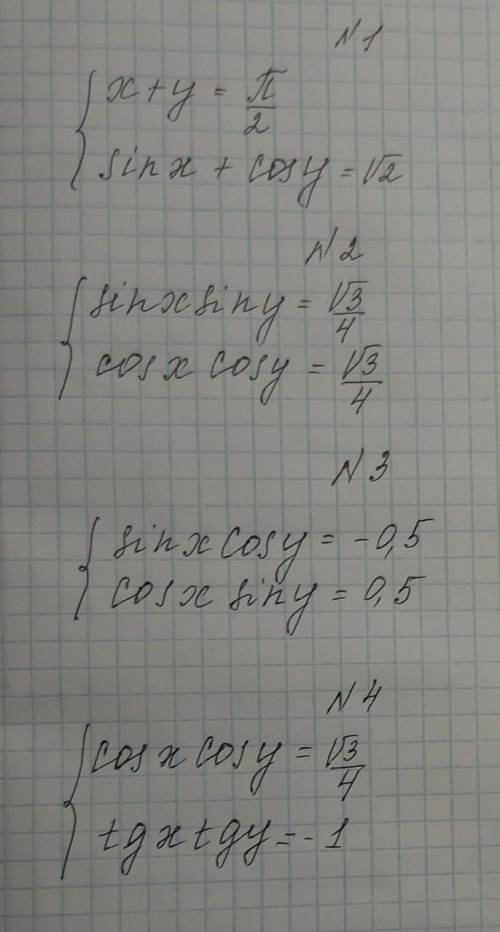 N1
x + y = π/2
sinx + cosy = √2
N2
sinx siny = √3/4
cosx cosy = √3/4
N3
sinx cosy = -0,5
cosx siny = 0,5
N4
cosx cosy = √3/4
tgx tgy = -1